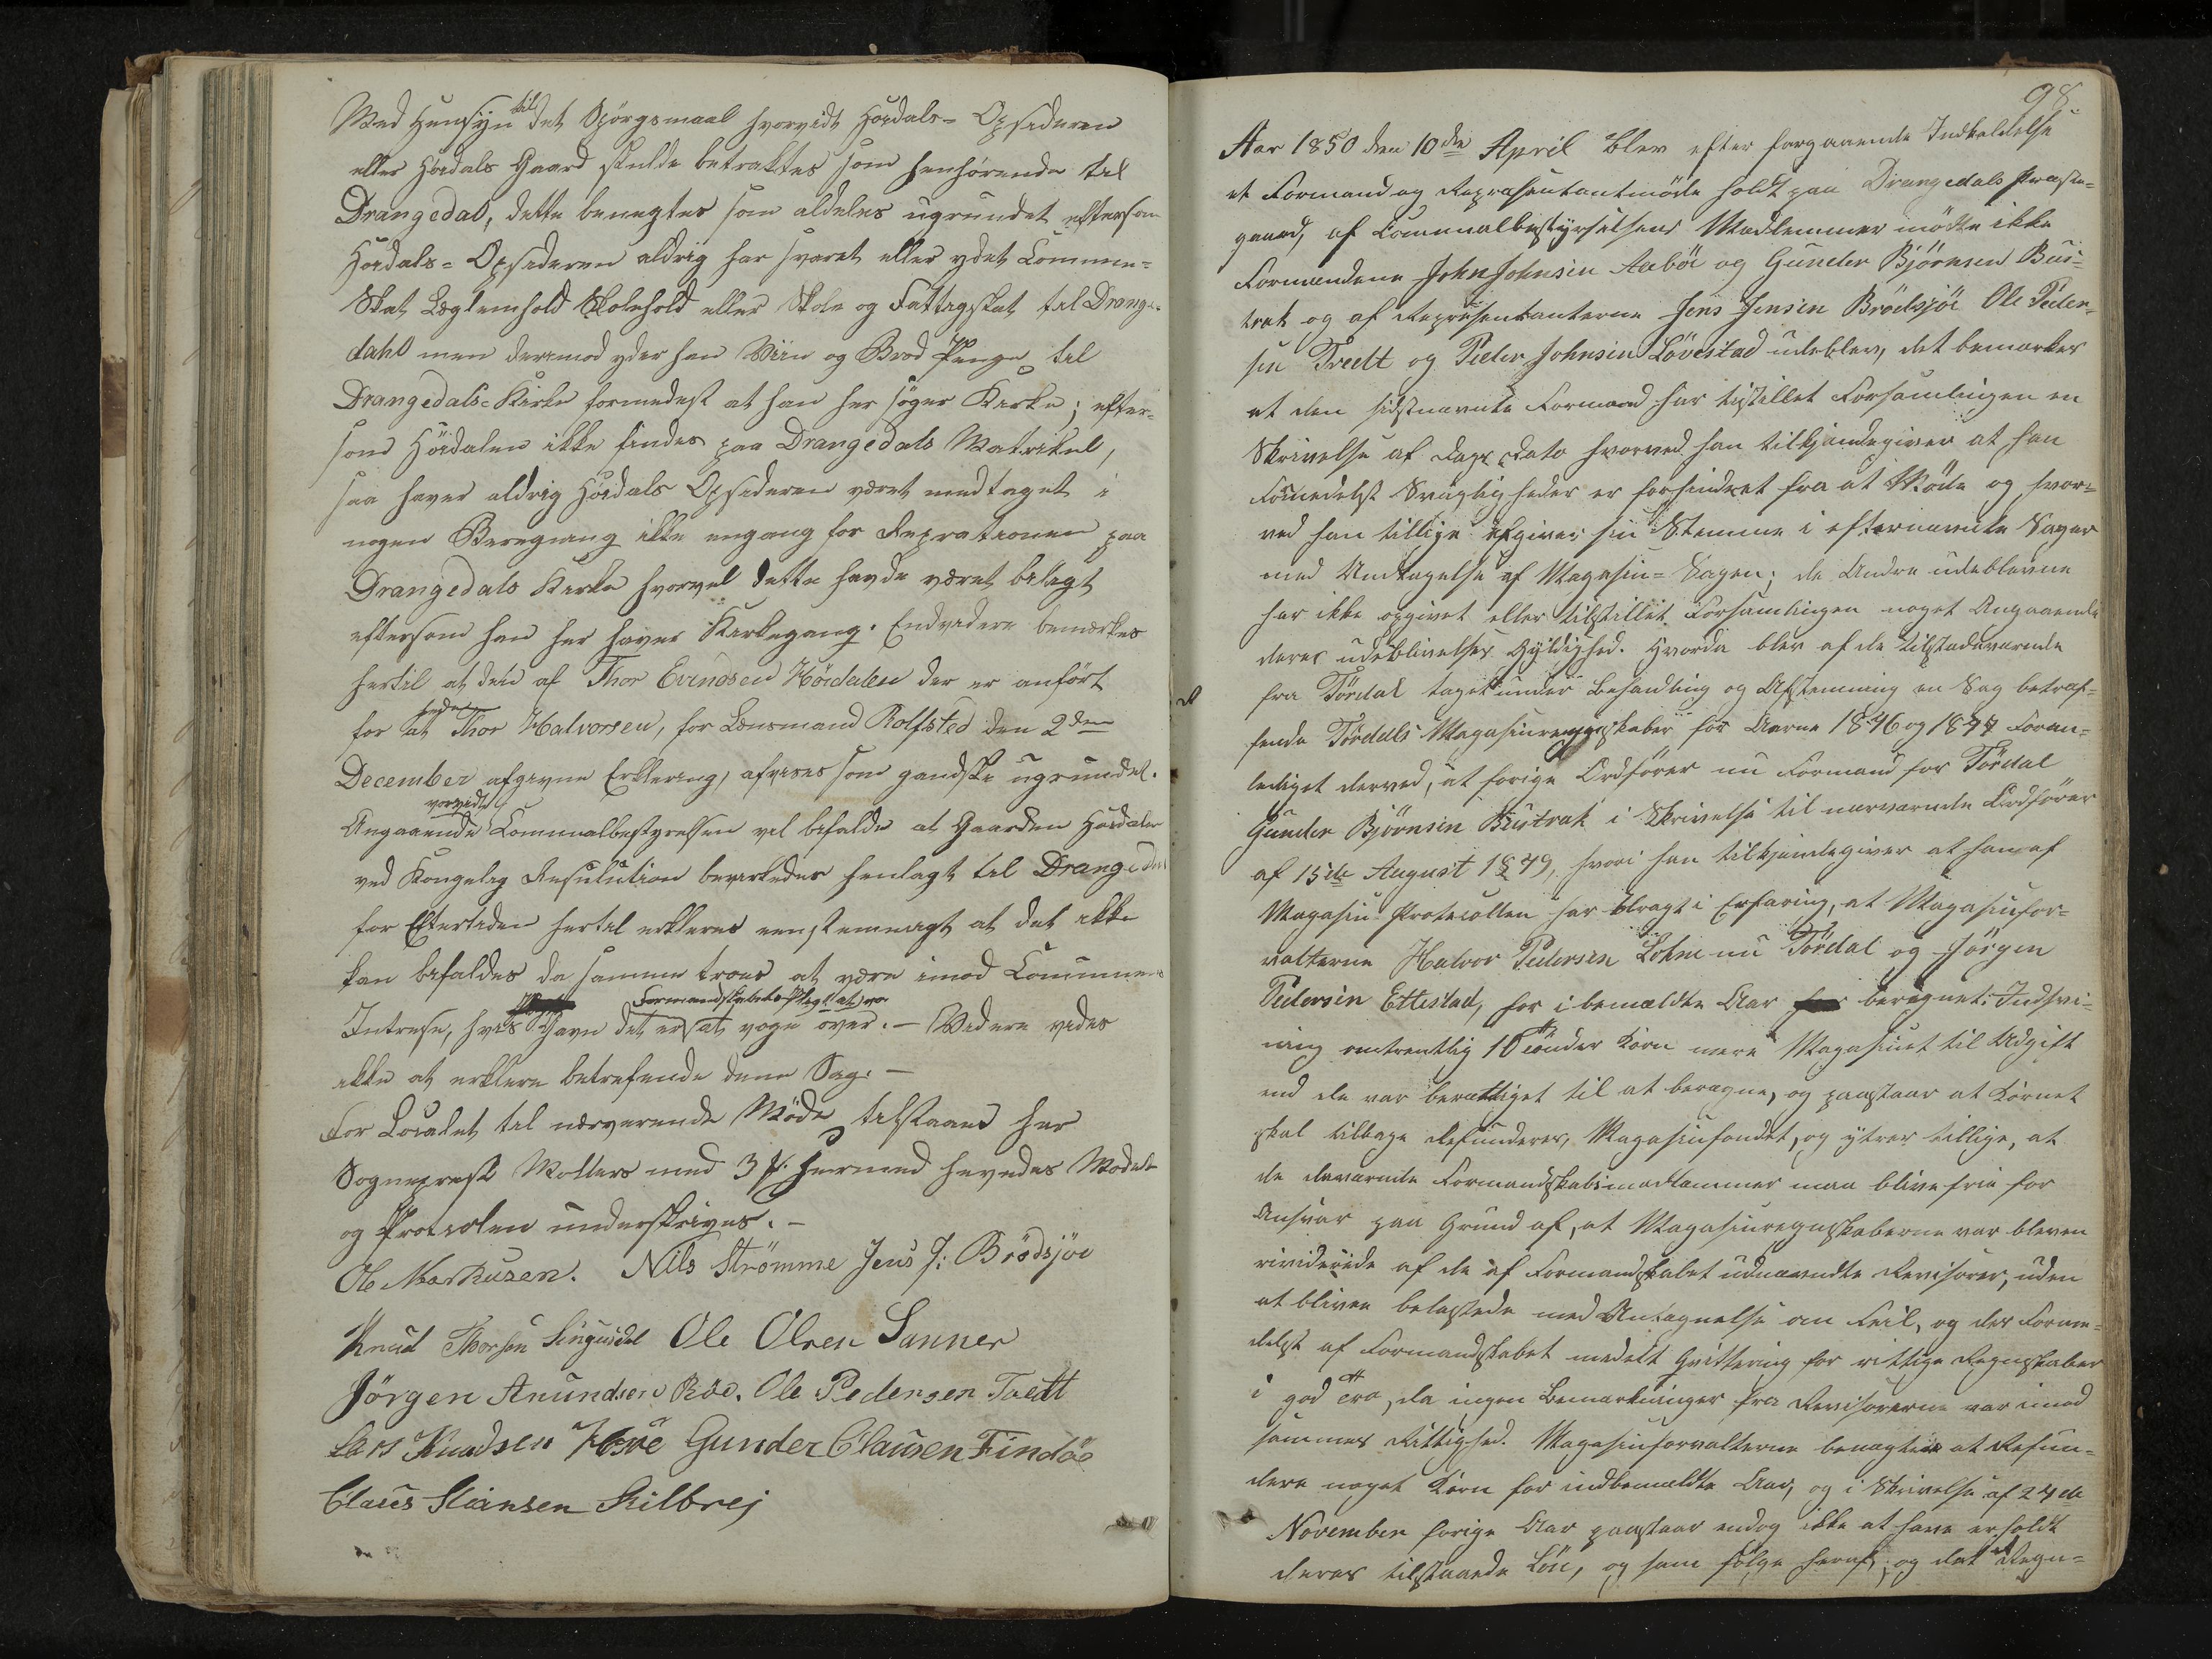 Med Hensyn til det Spörgsmaal hvorvidt Höidals- Opsideren
eller Höidals Gaard skulde betraktes som henhörende til
Drangedal, dette benegtes som aldeles ugrundet eftersom
Höidals- Opsideren aldrig har svaret eller ydet Commune-
Skat Læglemhold Skolehold eller Skole og Fattigskat til Drange-
dahl men derimod yder han Viin og Brod Penge til
Drangedals- Kirke formedelst at han her söger Kirke; efter-
som Höidalen ikke findes paa Drangedals Matrikel,
saa haver aldrig Höidals Opsideren været medtaget i
nogen Beregning ikke engang for Reprationen paa
Drangedals Kirke hvorvel dette havde været belagt
eftersom han her haver Kirkegang. Endvidere bemærkes
hertil at den af Thor Evindsen Höidalen der er anfört
for at Thor Halvorsen, for Lensmand Rolfsted den 2den
December afgivne Erklering, afvises som gandske ugrundet.
Angaaende vorvidt Communalbestyrelsen vel befalde at Gaarden Höidalen
ved Kongelig Resulution bevirkedes henlagt til Drangedal
for Eftertiden hertil erkleres eenstemmigt at det ikke
kan befaldes da samme troes at være imod Communens
Intrese, hvis Gavn det er Formandskabets Pligt at vaage over. — Videre vides
ikke at erklere betrefende dene Sag. —
For Localet til nærverende Möde tilstaaes her
Sogneprest Mollers med 3 ₰. Hermed hevedes Mödet
og Protocolen underskrives. —
Ole Markusen. Nils Strömme Jens J: Brödsjöe
Knud Thorsen Lingusdal Ole Olsen Sanner
Jörgen Anundsen Röe. Ole Pedersen Tveitt
Lars Knudsen Goye Gunder Clausen Findöe
Claus Hansen Kilbrej
98.
Aar 1850 den 10de April blev efter forgaaende Indkaldelse
et Formand og Representantmöde holdt paa Drangedals Præste-
gaard, af Communalbestyrelsens Medlemmer mödte ikke
Formændene John Johnsen Aaböe og Gunder Björnsen Bus-
trak og af Representanterne Jens Jensen Brödsjöe Ole Peder-
sen Tveedt og Peder Johnsen Lövestad udeblev, det bemærkes
at den sidstnævnte Formand har tilstillet Forsamlingen en
Skrivelse af Dags Dato hvorved han tilkjendegiver at han
formedelst Svagligheder er forhindret fra at Möde og hvor-
ved han tillige afgiver sin Stemme i efternævnte Sager
med Undtagelse af Magasin- Sagen; de Andre udeblevne
har ikke opgivet eller tilstillet Forsamlingen noget Angaaende
deres udeblivelses Gyldighed. Hvorda blev af de tilstedeværende
fra Tördal taget under Behandling og Afstemning en Sag betref-
fende Tördals Magasinregnskaber for Aarne 1846 og 1847 Foran-
lediget derved, at forige Ordförer nu Formand for Tördal
Gunder Björnsen Bustrak i Skrivelse til nærværende Ordförer
af 15de August 1849, hvori han tilkjendegiver at han af
Magasin Protocollen har bragt i Erfaring, at Magasinfor-
valterne Halvor Pedersen Lohne nu Tördal og Jörgen
Pedersen Ettestad, har i bemældte Aar beregnet Indsvi-
ning omtrentlig 10 Tönder Korn mere Magasinet til Udgift
end de var berettiget til at beregne, og paastaar at Kornet
skal tilbage Refunderes, Magasinfondet, og ytrer tillige, at
de deværende Formandskabsmedlemmer maa blive frie for
Ansvar paa Grund af, at Magasinregnskaberne var bleven
reviderede af de af Formandskabet udnævndte Revisorer, uden
at bliven belastede med Antegnelse om Feil, og der Forme-
delst af Formandskabet medelt Qvittering for rigtige Regnskaber
i god Tro, da ingen Bemærkninger fra Revisorerne var imod
sammes Rigtighed. Magasinforvalterne benægter at Refun-
dere noget Korn for indbemældte Aar, og i Skrivelse af 24de
November forige Aar paastaar endog ikke at have erholdt
deres tilstaaede Lön, og som fölge heraf, og det Regn-